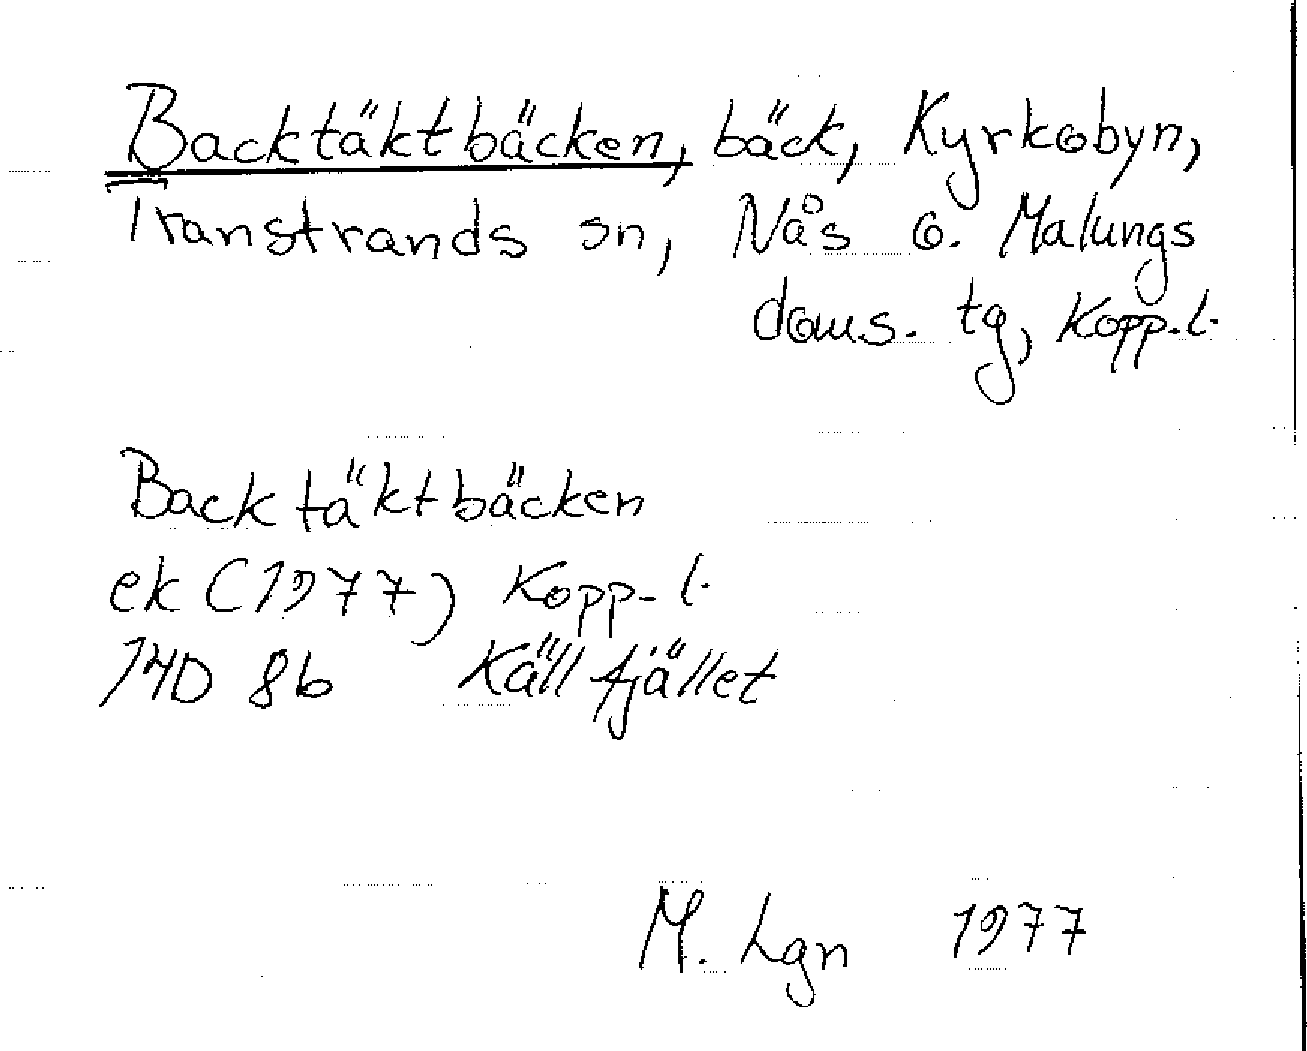 Backtäktbäcken, bäck, Kyrkobyn,
Transtrands sn, Nås o. Malungs
doms. tg, Kopp. l.
Backtäktbäcken
ek (1977) Kopp- l.
14D 8b Källfjället
M. Lgn 1977